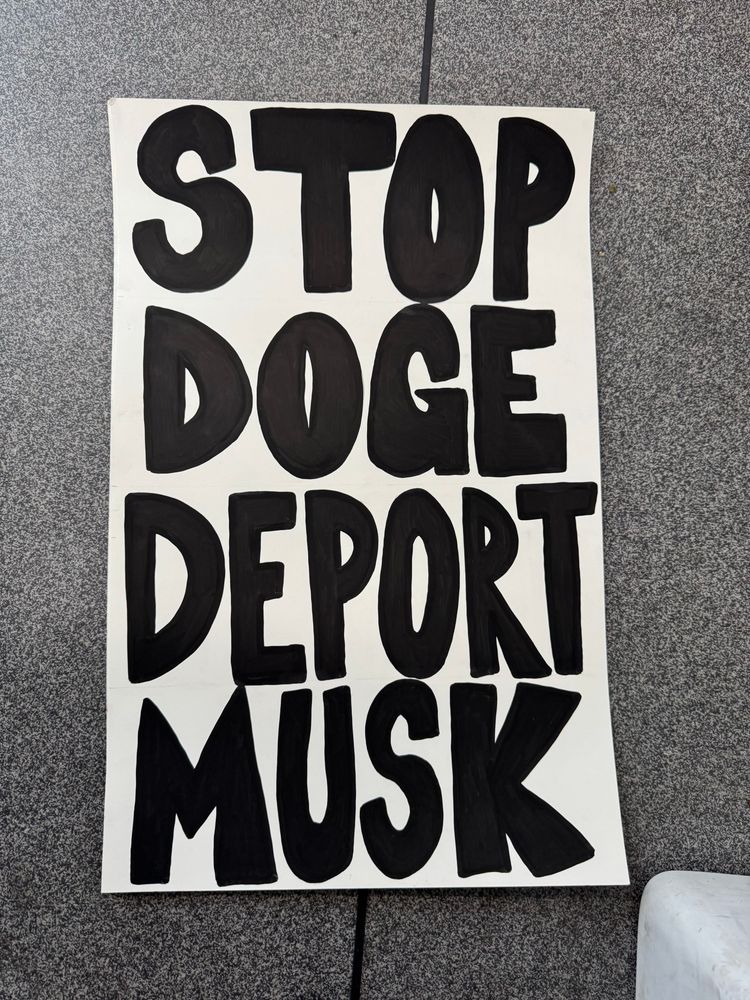 STOP
DOGE
DEPORT
MUSK